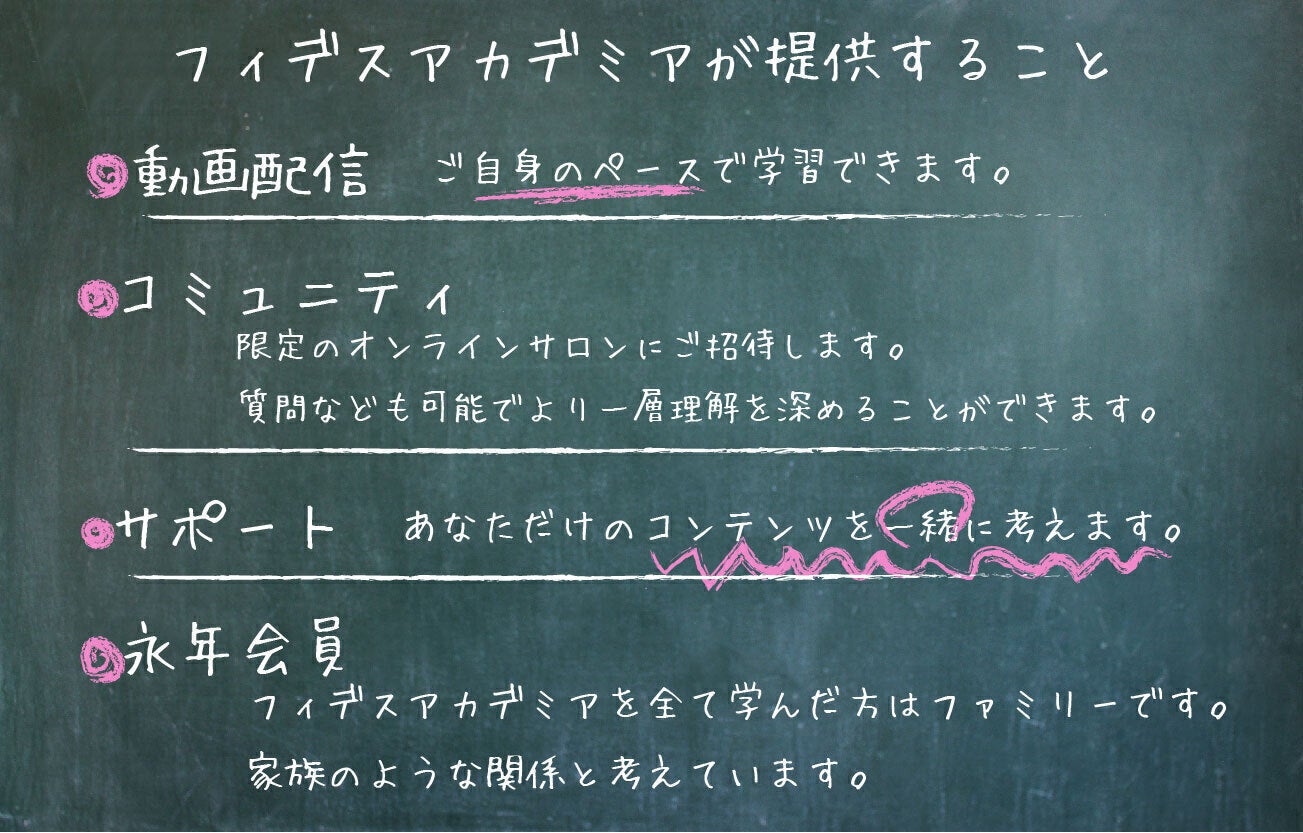 フィデスアカデミアが提供すること
動画配信 ご自身のペースで学習できます。
コミュニティ
限定のオンラインサロンにご招待します。
質問なども可能でより一層理解を深めることができます。
サポート あなただけのコンテンツを一緒に考えます。
永年会員
フィデスアカデミアを全て学んだ方はファミリーです。
家族のような関係と考えています。